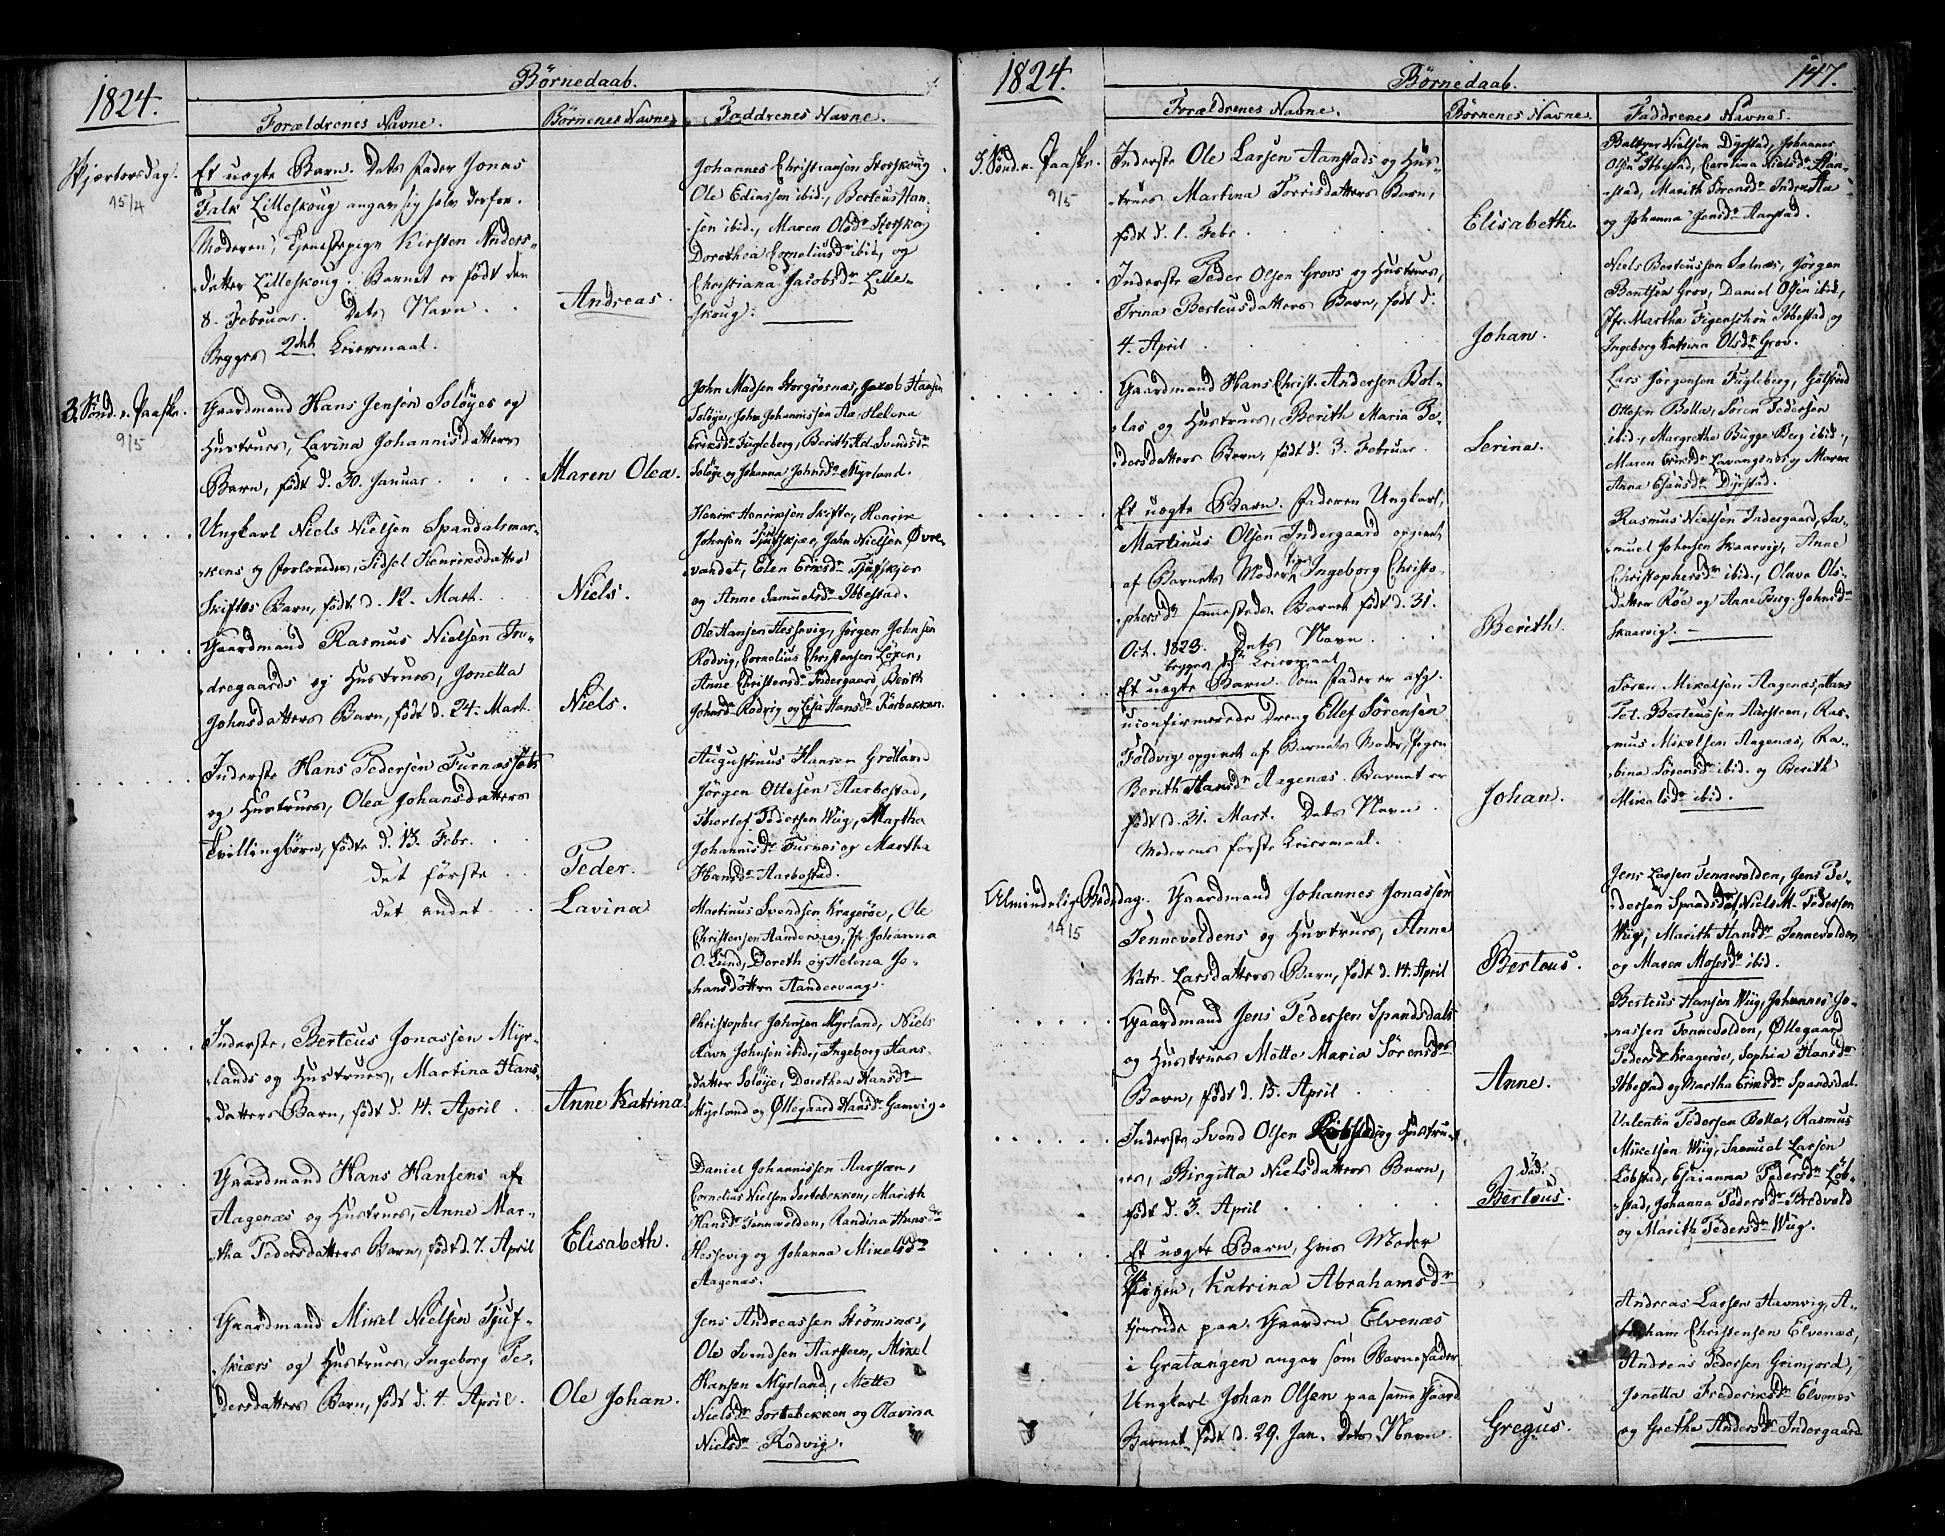 1824.
Børnedaab.
Forældrenes Navne.
Børnenes Navne.
Faddrenes Navne.
Skjertorsdag.
15/4
Et uægte Barn. Dets fader Jonas
Falk Lilleskoug angav sig selv derfor.
Moderen, Tjenestepige Kirsten Anders-
datter Lilleskoug. Barnet er født den
8. Februar. Dets Navn
Begges 2det Leiermaal.
Andreas.
Johannes Christiansen Storskoug
Ole Eliassen ibid., Berteus Han-
sen ibid., Maren Olsdr Storskoug
Dorothea Corneliusdr ibid., og
Christiana Jacobsdr Lille-
skoug.
3. Sønd. e. Paaske.
9/5
Gaardmand Hans Jensen Soløyes og
Hustrues, Lavina Johannisdatters
Barn, født d. 30. Januar
Maren Olea.
John Madsen Storgrøsnæs, Jacob Hansen
Soløye, John Johannissen Aa, Helena
Eriksdr Fugleberg, Berith Ad. Svendsdr
Soløye og Johanna Johnsdr Myrland.
Ungkarl Niels Nielsen Spandalsmar-
kens og forlovede, Sidsel Henriksdatter
Skiftes Barn, født d. 12. Mart.
Niels.
Henrik Henriksen Skifte, Henrik
Johnsen Tjufskjær, John Nielsen Øvre-
vandet, Elen Eriksdr Tjufskjer
og Anne Samuelsdr Ibbestad.
Gaardmand Rasmus Nielsen In-
dregaards og Hustrues, Jonetta
Johnsdatters Barn, født d. 24. Mart.
Niels.
Ole Hansen Hessevig, Jørgen Johnsen
Rødvig, Cornelius Christensen Løxen,
Anne Christensdr Indergaard, Berith
Johnsdr Rødvig og Lisa Hansdr Rørbakken.
Inderste Hans Pedersen Furnæs
og Hustrues, Olea Johansdatters
Tvillingbørn, fødte d. 13. Febr.
det første
det andet
Peder.
Lavina
Augustinus Hansen Grøtland
Jørgen Ottesen Aarbostad,
Thorlef Pedersen Wiig, Martha
Johannisdr Furnæs og Martha
Hansdr Aarbostad.
Martinus Svendsen Kragerøe, Ole
Christensen Hundervaag, Jfr. Johanna
O. Lund, Doreth og Helena Jo-
hansdøttre Aandervaag.
Inderste, Berteus Jonassen Myr-
lands og Hustrues, Martina Hans-
datters Barn, født d. 14. April
Anne Katrina.
Christopher Johnsen Myrland, Niels
Ravn Johnsen ibid., Ingeborg Hans-
datter Soløye, Dorothea Hansdr
Myrland og Øllegaard Hansdr Gamvig.
Gaardmand Hans Hansens af
Aagenæs og Hustrues, Anne Mar-
tha Pedersdatters Barn, født d. 7. April
Elisabeth.
Daniel Johannissen Aarsteen,
Cornelius Nielsen Sortebekken, Marith
Hansdr Tennevolden, Randina Hansdr
Hessevig og Johanna Mikelsdr
Aagenæs.
Gaardmand Mikel Nielsen Tjuf-
skiærs og Hustrues, Ingeborg Pe-
dersdatters Barn, født d. 4. April.
Ole Johan.
Jens Andreassen Strømsnes,
Ole Svendsen Aarsteen, Mikel
Hansen Myrland, Mette
Nielsdr Sortebekken og Olavina
Nielsdr Rødvig.
1824.
Børnedaab.
147.
Forældrenes Navne.
Børnenes Navne.
Faddrenes Navne.
3. Sønd. e. Paaske.
9/5
Inderste Ole Larsen Aanstads og Hus-
trues Martina Torrisdatters Barn,
født d. 1. Febr.
Elisabeth.
Baltzer Nielsen Dyrstad, Johannes
Olsen Ibbestad, Carolina Nielsdr Aan-
stad, Marith Sørensdr Indre Aa
og Johanna Jensdr Aarstad.
Inderste Peder Olsen Grovs og Hustrues,
Trina Berteusdatters Barn, født d.
4. April
Johan.
Niels Berteussen Sælnæs, Jørgen
Bentsen Grov, Daniel Olsen ibid.,
Jfr. Martha Figenschou Ibbestad og
Ingeborg Katrina Olsdr Grov.
Gaardmand Hans Christ. Andersen Bol-
las og Hustrues, Berith Maria Pe-
dersdatters Barn, født d. 3. Februar
Serina.
Lars Jørgensen Fugleberg, Gulbrand
Ottesen Bolla, Søren Pedersen
ibid., Margretha Bugge Berg ibid.,
Maren Eriksdr Lavangsnes og Maren
Anna Esaiasdr Dyrstad.
Et uægte Barn. Faderen Ungkarl,
Martinus Olsen Indergaard opgivet
af Barnets Moder Pigen Ingeborg Christo-
phersdr sammesteds. Barnet født d. 31.
Oct. 1823. Dets Navn
begges 1ste Leiermaal
Berith.
Rasmus Nielsen Indergaard, Sa-
muel Johnsen Skaarvig, Anne
Christophersdr ibid., Olava Ols-
datter Røe og Anne Birg. Johnsdr
Skaarvig.
Et uægte Barn. Som fader er afgl.
uconfirmerede Dreng Ellef Sørensen
Foldvig opgivet af Barnets Moder, Pigen
Berith Hansdr Aagenæs. Barnet er
født d. 31. Mart. Dets Navn
Moderens første Leiermaal.
Johan.
Søren Mikelsen Aagenæs, Hans
Pet. Berteussen Aarsteen, Ras-
mus Mikelsen Aagenæs, Ra-
bina Sørensdr ibid. og Berith
Mikelsdr ibid.
Almindelig Bededag.
14/5
Gaardmand Johannes Jonassen
Tennevoldens og Hustrues, Anne
Katr. Larsdatters Barn, født d. 14. April
Berteus.
Jens Larsen Tennevolden, Jens Pe-
dersen Spandsdal, Niels M. Pedersen
Wiig, Marith Hansdr Tennevolden
og Maren Mosesdr ibid.
Gaardmand Jens Pedersen Spandsdals
og Hustrues Mette Maria Sørensdrs
Barn, født d. 15. April
Anne.
Berteus Hansen Wiig, Johannes Jo-
nassen Tennevolden, Øllegaard
Pedersdr Kragerøe, Sophia Hansdr
Ibbestad og Martha Eriksdr Spandsdal.
Inderste Svend Olsen Løbstad og Hustru-
es, Birgitta Nielsdatters Barn,
født d. 3. April
død.
Berteus.
Valentin Pedersen Bolla, Rasmus
Mikelsen Wiig, Samuel Larsen
Løbstad, Esaianna Pedersdr Løb-
stad, Johanna Pedersdr Bredvold
og Marith Pedersdr Wiig.
Et uægte Barn, hvis Moder
Pigen, Katrina Abrahamsdr
tjenende paa Gaarden Elvenæs
i Gratangen angav som Barnefader
Ungkarl Johan Olsen paa samme Gaard
Barnet født d. 29. Jan. Dets Navn
Gregus.
Andreas Larsen Havnvig, A-
braham Christensen Elvenæs,
Andreas Pedersen Grimjord,
Jonetta Frederiksdr Elvenes
og Grethe Andersdr Indergaard